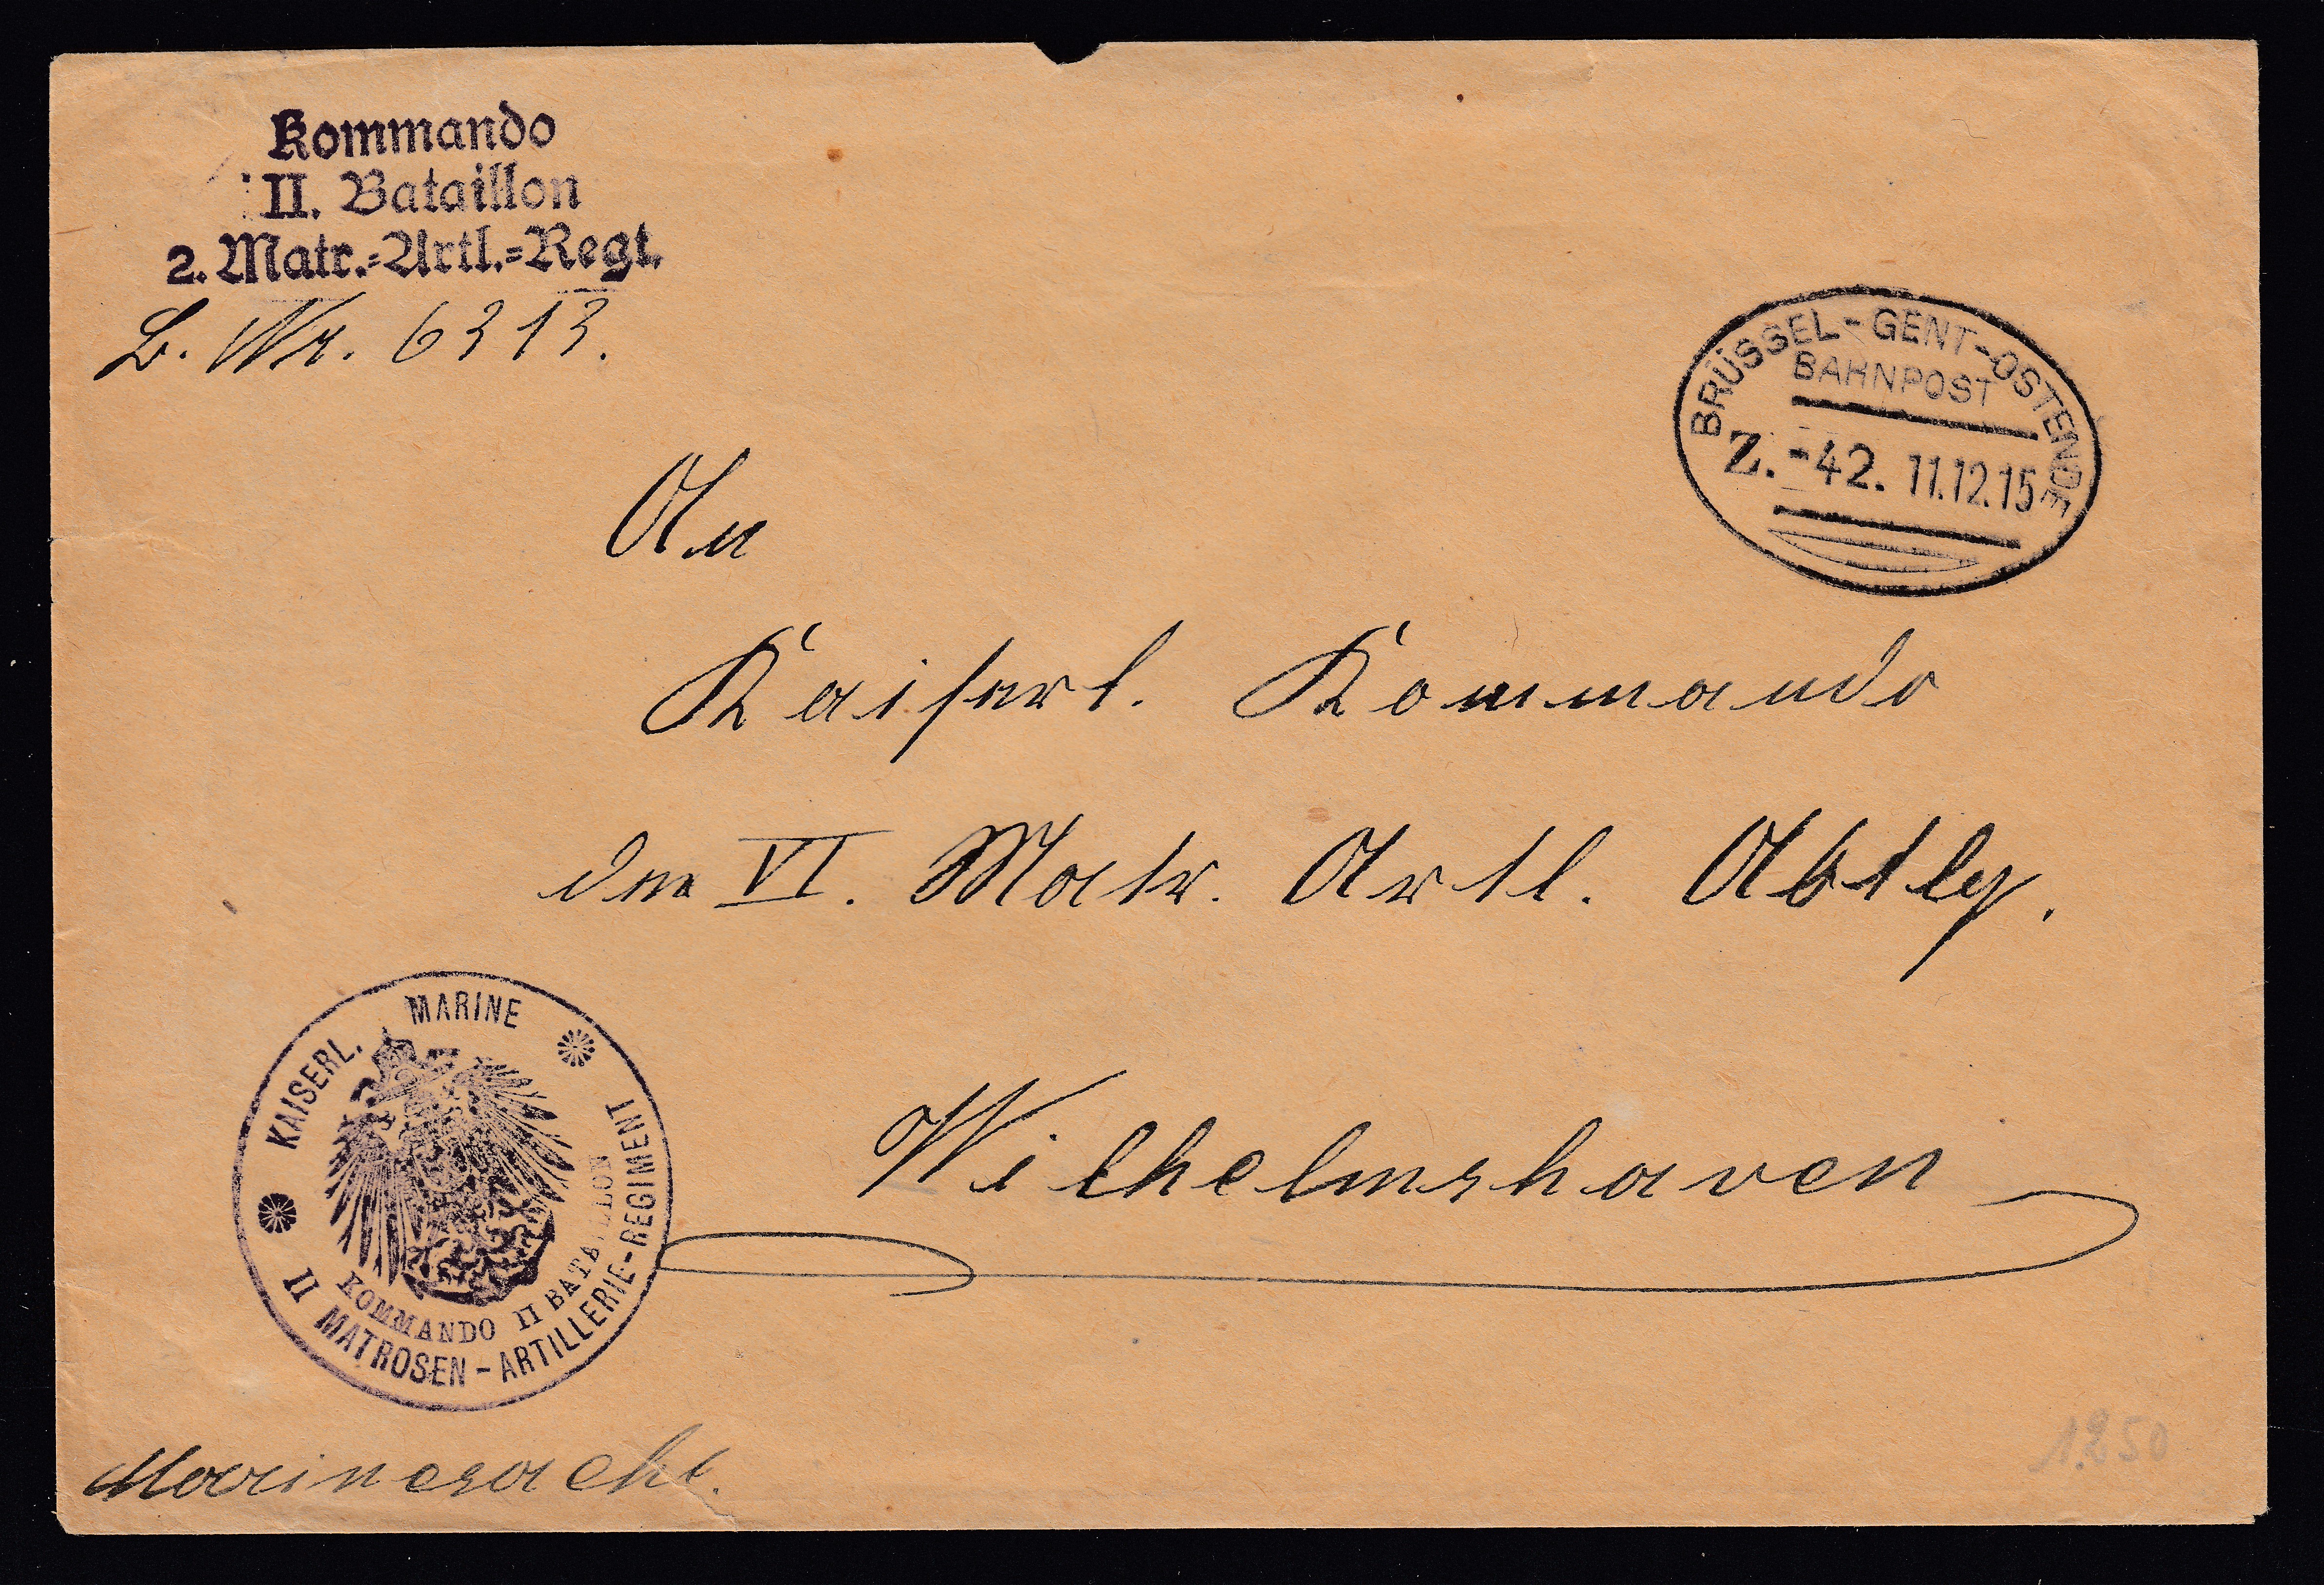 Kommando
II. Bataillon
2. Matr.-Artl.-Regt.
B. Nr. 6313.
BRÜSSEL-GENT-OSTENDE
BAHNPOST
Z. -42. 11.12.15
An
Kaiserl. Kommando
der VI. Matr. Artl. Abtlg.
Wilhelmshaven
KAISERL. MARINE
KOMMANDO II BATAILLON
II MATROSEN-ARTILLERIE-REGIMENT
Marinesache.
1250